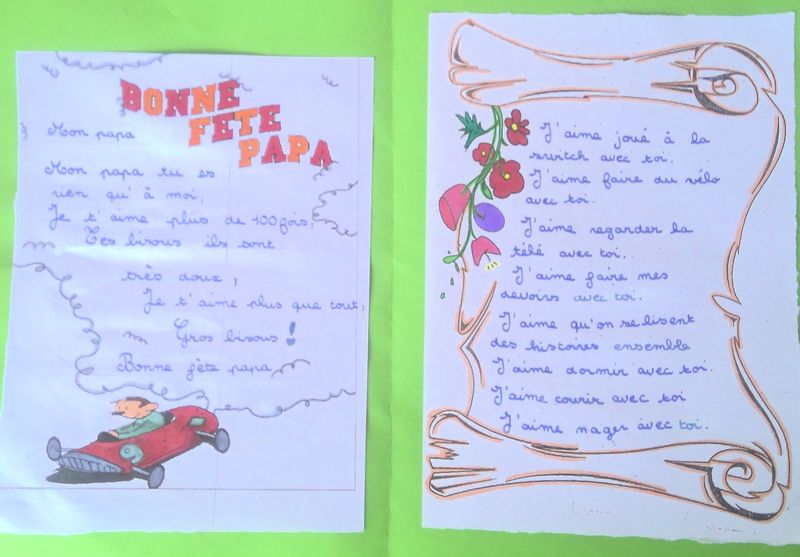 BONNE
FETE
PAPA
Mon papa
Mon papa tu es
rien qu'à moi,
Je t'aime plus de 100 fois,
Tes bisous ils sont
très doux,
Je t'aime plus que tout,
Gros bisous !
Bonne fête papa
J'aime joué à la
switch avec toi.
J'aime faire du vélo
avec toi.
J'aime regarder la
télé avec toi.
J'aime faire mes
devoirs avec toi.
J'aime qu'on se lisent
des histoires ensemble
J'aime dormir avec toi.
J'aime courir avec toi
J'aime nager avec toi.